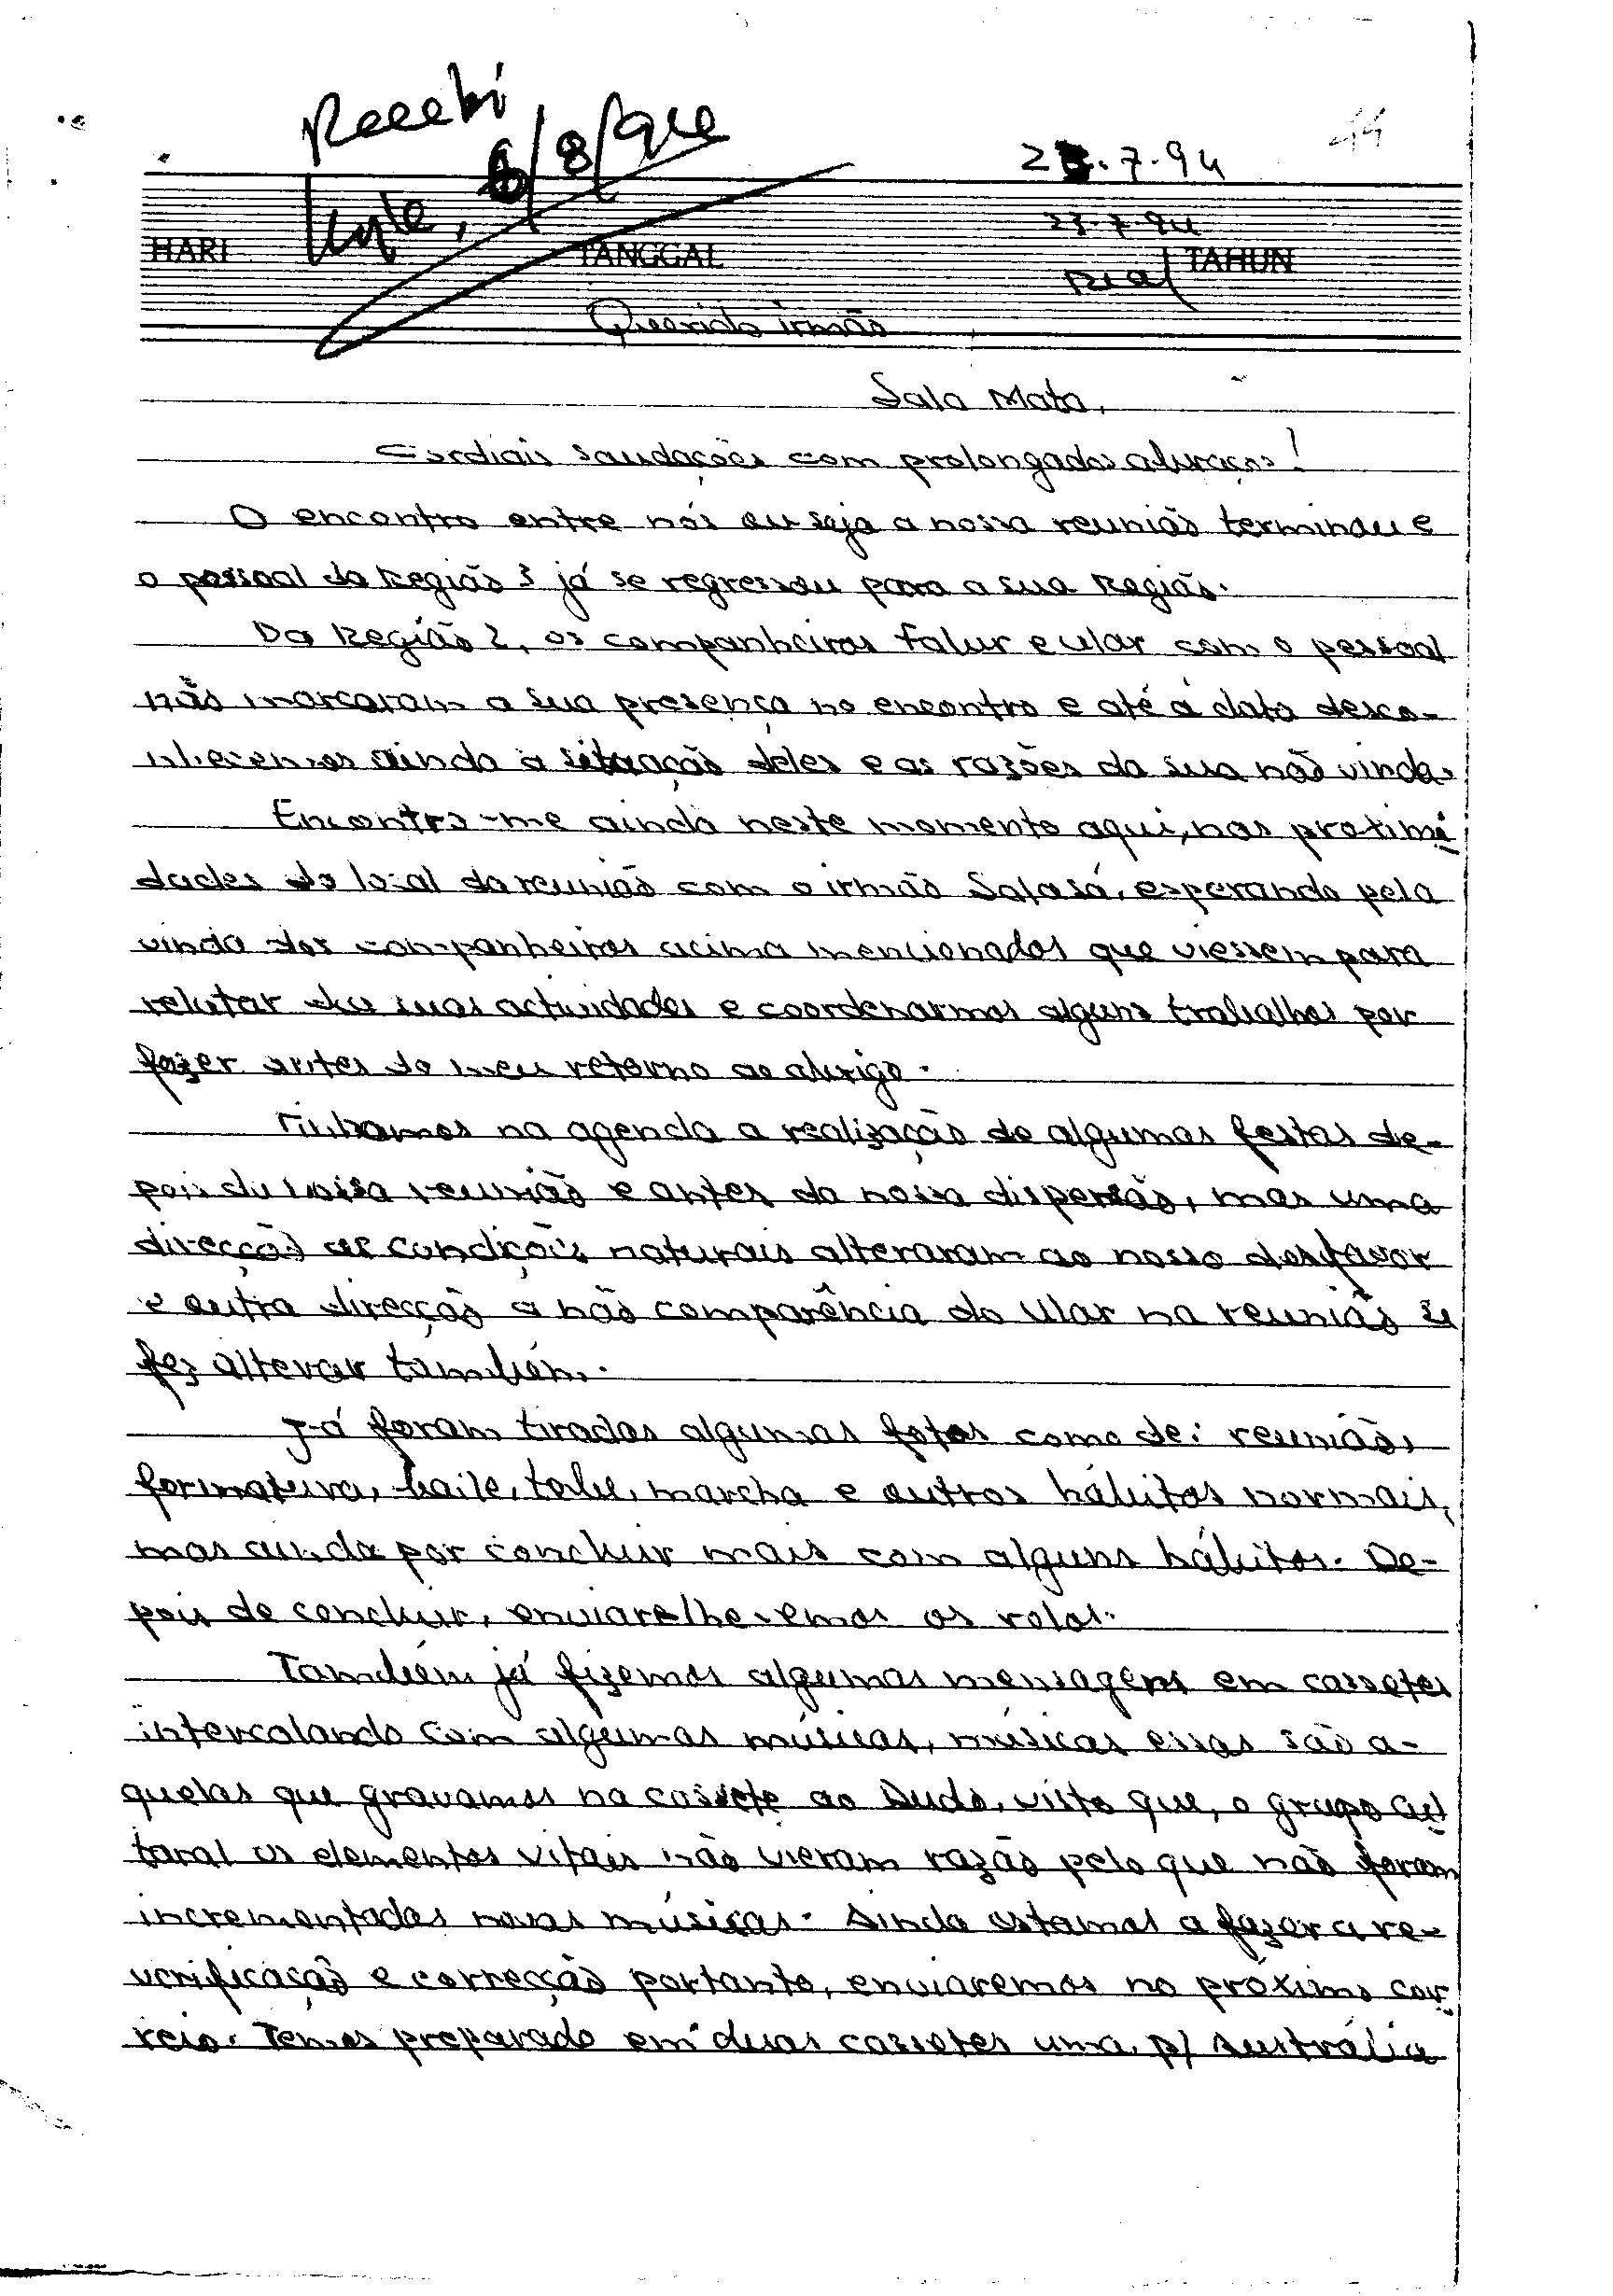 Recebi
6/8/94
44
2 .7.94
23.7.94
HARI TANGGAL TAHUN
Querido irmão
Sala Mata,
Cordiais saudações com prolongados abraços!
O encontro entre nós ou seja a nossa reunião terminou e
o pessoal da Região 3 já se regressou para a sua Região.
Da Região 2, os companheiros Falur e Ular com o pessoal
não marcaram a sua presença no encontro e até á data desco-
nhecemos ainda a situação deles e as razões da sua não vinda.
Encontro-me ainda neste momento aqui, nas proximi
dades do local da reunião com o irmão Sabasá, esperando pela
vinda dos companheiros acima mencionados que viessem para
relatar das suas actividades e coordenarmos alguns trabalhos por
fazer antes do meu retorno ao abrigo.
Tinhamos na agenda a realização de algumas festas de-
pois da nossa reunião e antes da nossa dispersão, mas uma
direcção as condições naturais alteraram ao nosso desfavor
e outra direcção a não comparência do Ular na reunião se
fez alterar também.
Já foram tiradas algumas fotos como de: reunião,
formatura, baile, tebe, marcha e outros hábitos normais,
mas ainda por concluir mais com alguns hábitos. De-
pois de concluir, enviarelhe-emos os rolos.
Também já fizemos algumas mensagens em cassetes
intercalando com algumas músicas, músicas essas são a-
quelas que gravamos na cassete ao Budo, visto que, o grupo cul
tural os elementos vitais não vieram razão pelo que não foram
incrementadas novas músicas. Ainda estamos a fazer a re-
verificação e correcção portanto, enviaremos no próximo cor
reio. Temos preparado em duas cassetes uma p/ Austrália